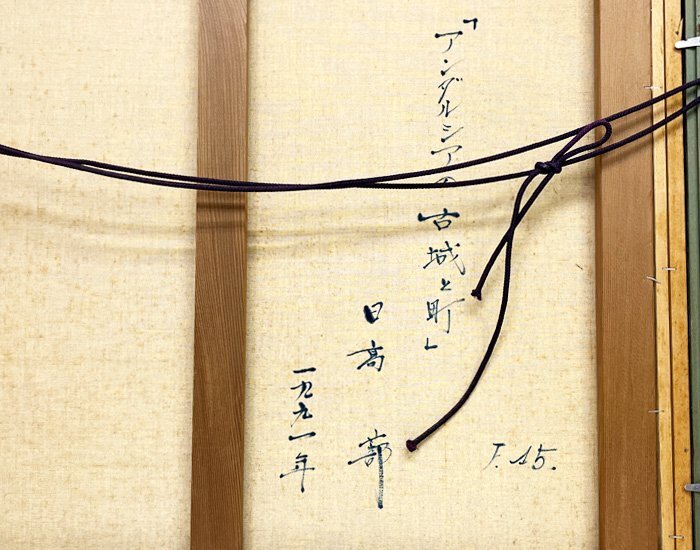 「アンダルシアの古城と町」
日高 蔀
一九九一年
F.15.